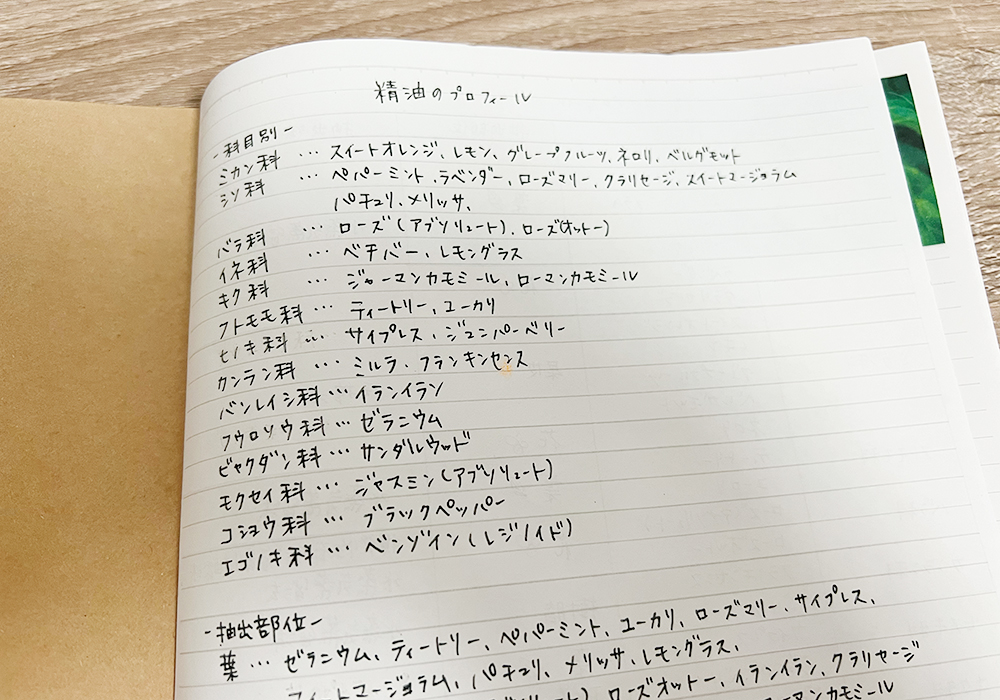 精油のプロフィール
-科目別-
ミカン科 … スイートオレンジ、レモン、グレープフルーツ、ネロリ、ベルガモット
シソ科 … ペパーミント、ラベンダー、ローズマリー、クラリセージ、スイートマージョラム
パチュリ、メリッサ、
バラ科 … ローズ(アブソリュート)、ローズ(オットー)
イネ科 … ベチバー、レモングラス
キク科 … ジャーマンカモミール、ローマンカモミール
フトモモ科 … ティートリー、ユーカリ
ヒノキ科 … サイプレス、ジュニパーベリー
カンラン科 … ミルラ、フランキンセンス
バンレイシ科 … イランイラン
フウロソウ科 … ゼラニウム
ビャクダン科 … サンダルウッド
モクセイ科 … ジャスミン(アブソリュート)
コショウ科 … ブラックペッパー
エゴノキ科 … ベンゾイン(レジノイド)
-抽出部位-
葉 … ゼラニウム、ティートリー、ペパーミント、ユーカリ、ローズマリー、サイプレス、
スイートマージョラム、パチュリ、メリッサ、レモングラス、
ローズオットー、イランイラン、クラリセージ
ローマンカモミール